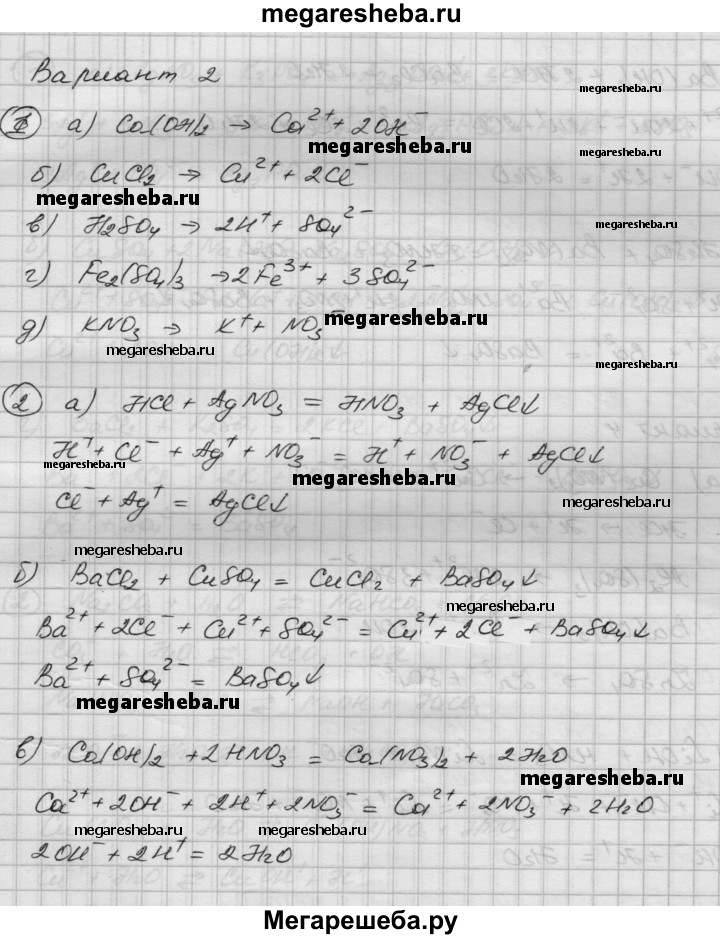 megaresheba.ru
Вариант 2
megaresheba.ru
① а) Ca(OH)₂ → Ca²⁺ + 2OH⁻
megaresheba.ru
megaresheba.ru
б) CuCl₂ → Cu²⁺ + 2Cl⁻
megaresheba.ru
в) H₂SO₄ → 2H⁺ + SO₄²⁻
megaresheba.ru
г) Fe₂(SO₄)₃ → 2Fe³⁺ + 3SO₄²⁻
д) KNO₃ → K⁺ + NO₃⁻
megaresheba.ru
megaresheba.ru
megaresheba.ru
② а) HCl + AgNO₃ = HNO₃ + AgCl↓
H⁺ + Cl⁻ + Ag⁺ + NO₃⁻ = H⁺ + NO₃⁻ + AgCl↓
megaresheba.ru
megaresheba.ru
Cl⁻ + Ag⁺ = AgCl↓
megaresheba.ru
megaresheba.ru
б) BaCl₂ + CuSO₄ = CuCl₂ + BaSO₄↓
megaresheba.ru
Ba²⁺ + 2Cl⁻ + Cu²⁺ + SO₄²⁻ = Cu²⁺ + 2Cl⁻ + BaSO₄↓
Ba²⁺ + SO₄²⁻ = BaSO₄↓
megaresheba.ru
в) Ca(OH)₂ + 2HNO₃ = Ca(NO₃)₂ + 2H₂O
megaresheba.ru
Ca²⁺ + 2OH⁻ + 2H⁺ + 2NO₃⁻ = Ca²⁺ + 2NO₃⁻ + 2H₂O
megaresheba.ru
megaresheba.ru
2OH⁻ + 2H⁺ = 2H₂O
Мегарешеба.ру